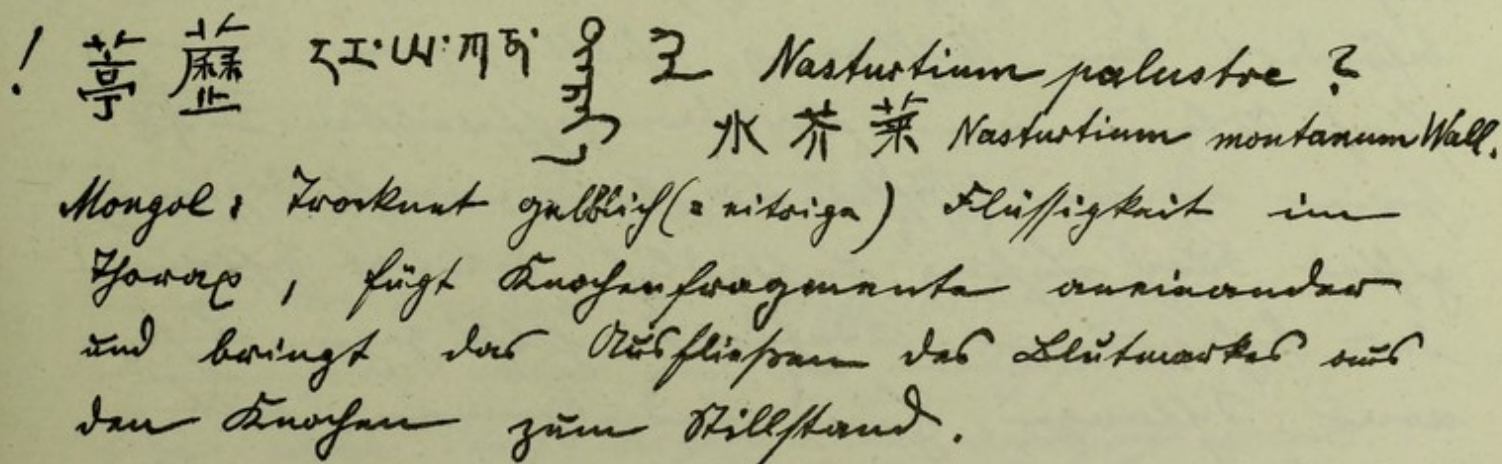 ! 葶藶 Nasturtium palustre ?
水芥菜 Nasturtium montanum Wall.
Mongol: Trocknet gelblich (= eitrige) Flüssigkeit im
Thorax, fügt Knochenfragmente aneinander
und bringt das Ausfließen des Blutmarkes aus
den Knochen zum Stillstand.